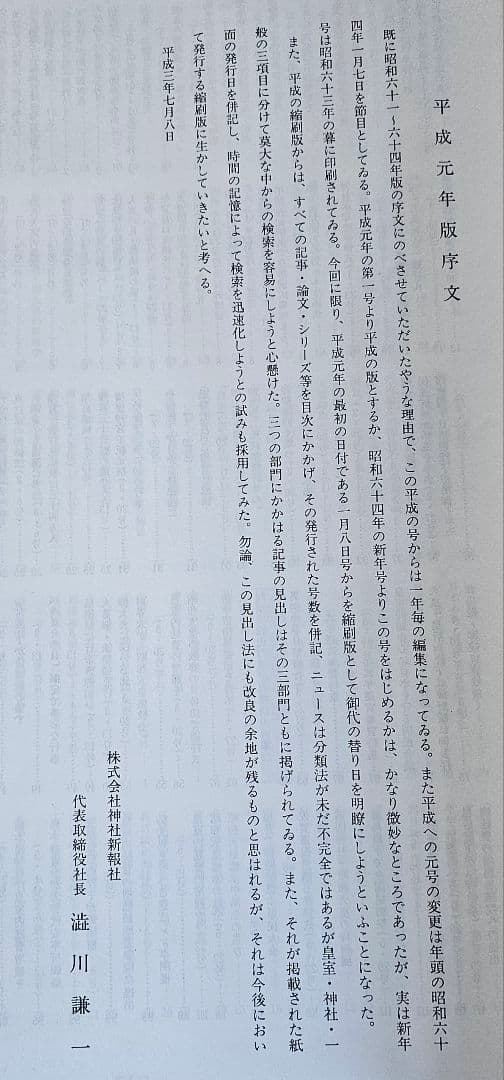 平成元年版序文
既に昭和六十一～六十四年版の序文にのべさせていただいたやうな理由で、この平成の号からは一年毎の編集になってゐる。また平成への元号の変更は年頭の昭和六十
四年一月七日を節目としてゐる。平成元年の第一号より平成の版とするか、昭和六十四年の新年号よりこの号をはじめるかは、かなり微妙なところであったが、実は新年
号は昭和六十三年の暮に印刷されてゐる。今回に限り、平成元年の最初の日付である一月八日号からを縮刷版として御代の替り日を明瞭にしようといふことになった。
また、平成の縮刷版からは、すべての記事・論文・シリーズ等を目次にかかげ、その発行された号数を併記、ニュースは分類法が未だ不完全ではあるが皇室・神社・一
般の三項目に分けて莫大な中からの検索を容易にしようと心懸けた。三つの部門にかかはる記事の見出しはその三部門ともに掲げられてゐる。また、それが掲載された紙
面の発行日を併記し、時間の記憶によって検索を迅速化しようとの試みも採用してみた。勿論、この見出し法にも改良の余地が残るものと思はれるが、それは今後におい
て発行する縮刷版に生かしていきたいと考へる。
平成三年七月八日
株式会社神社新報社
代表取締役社長 澁川謙一